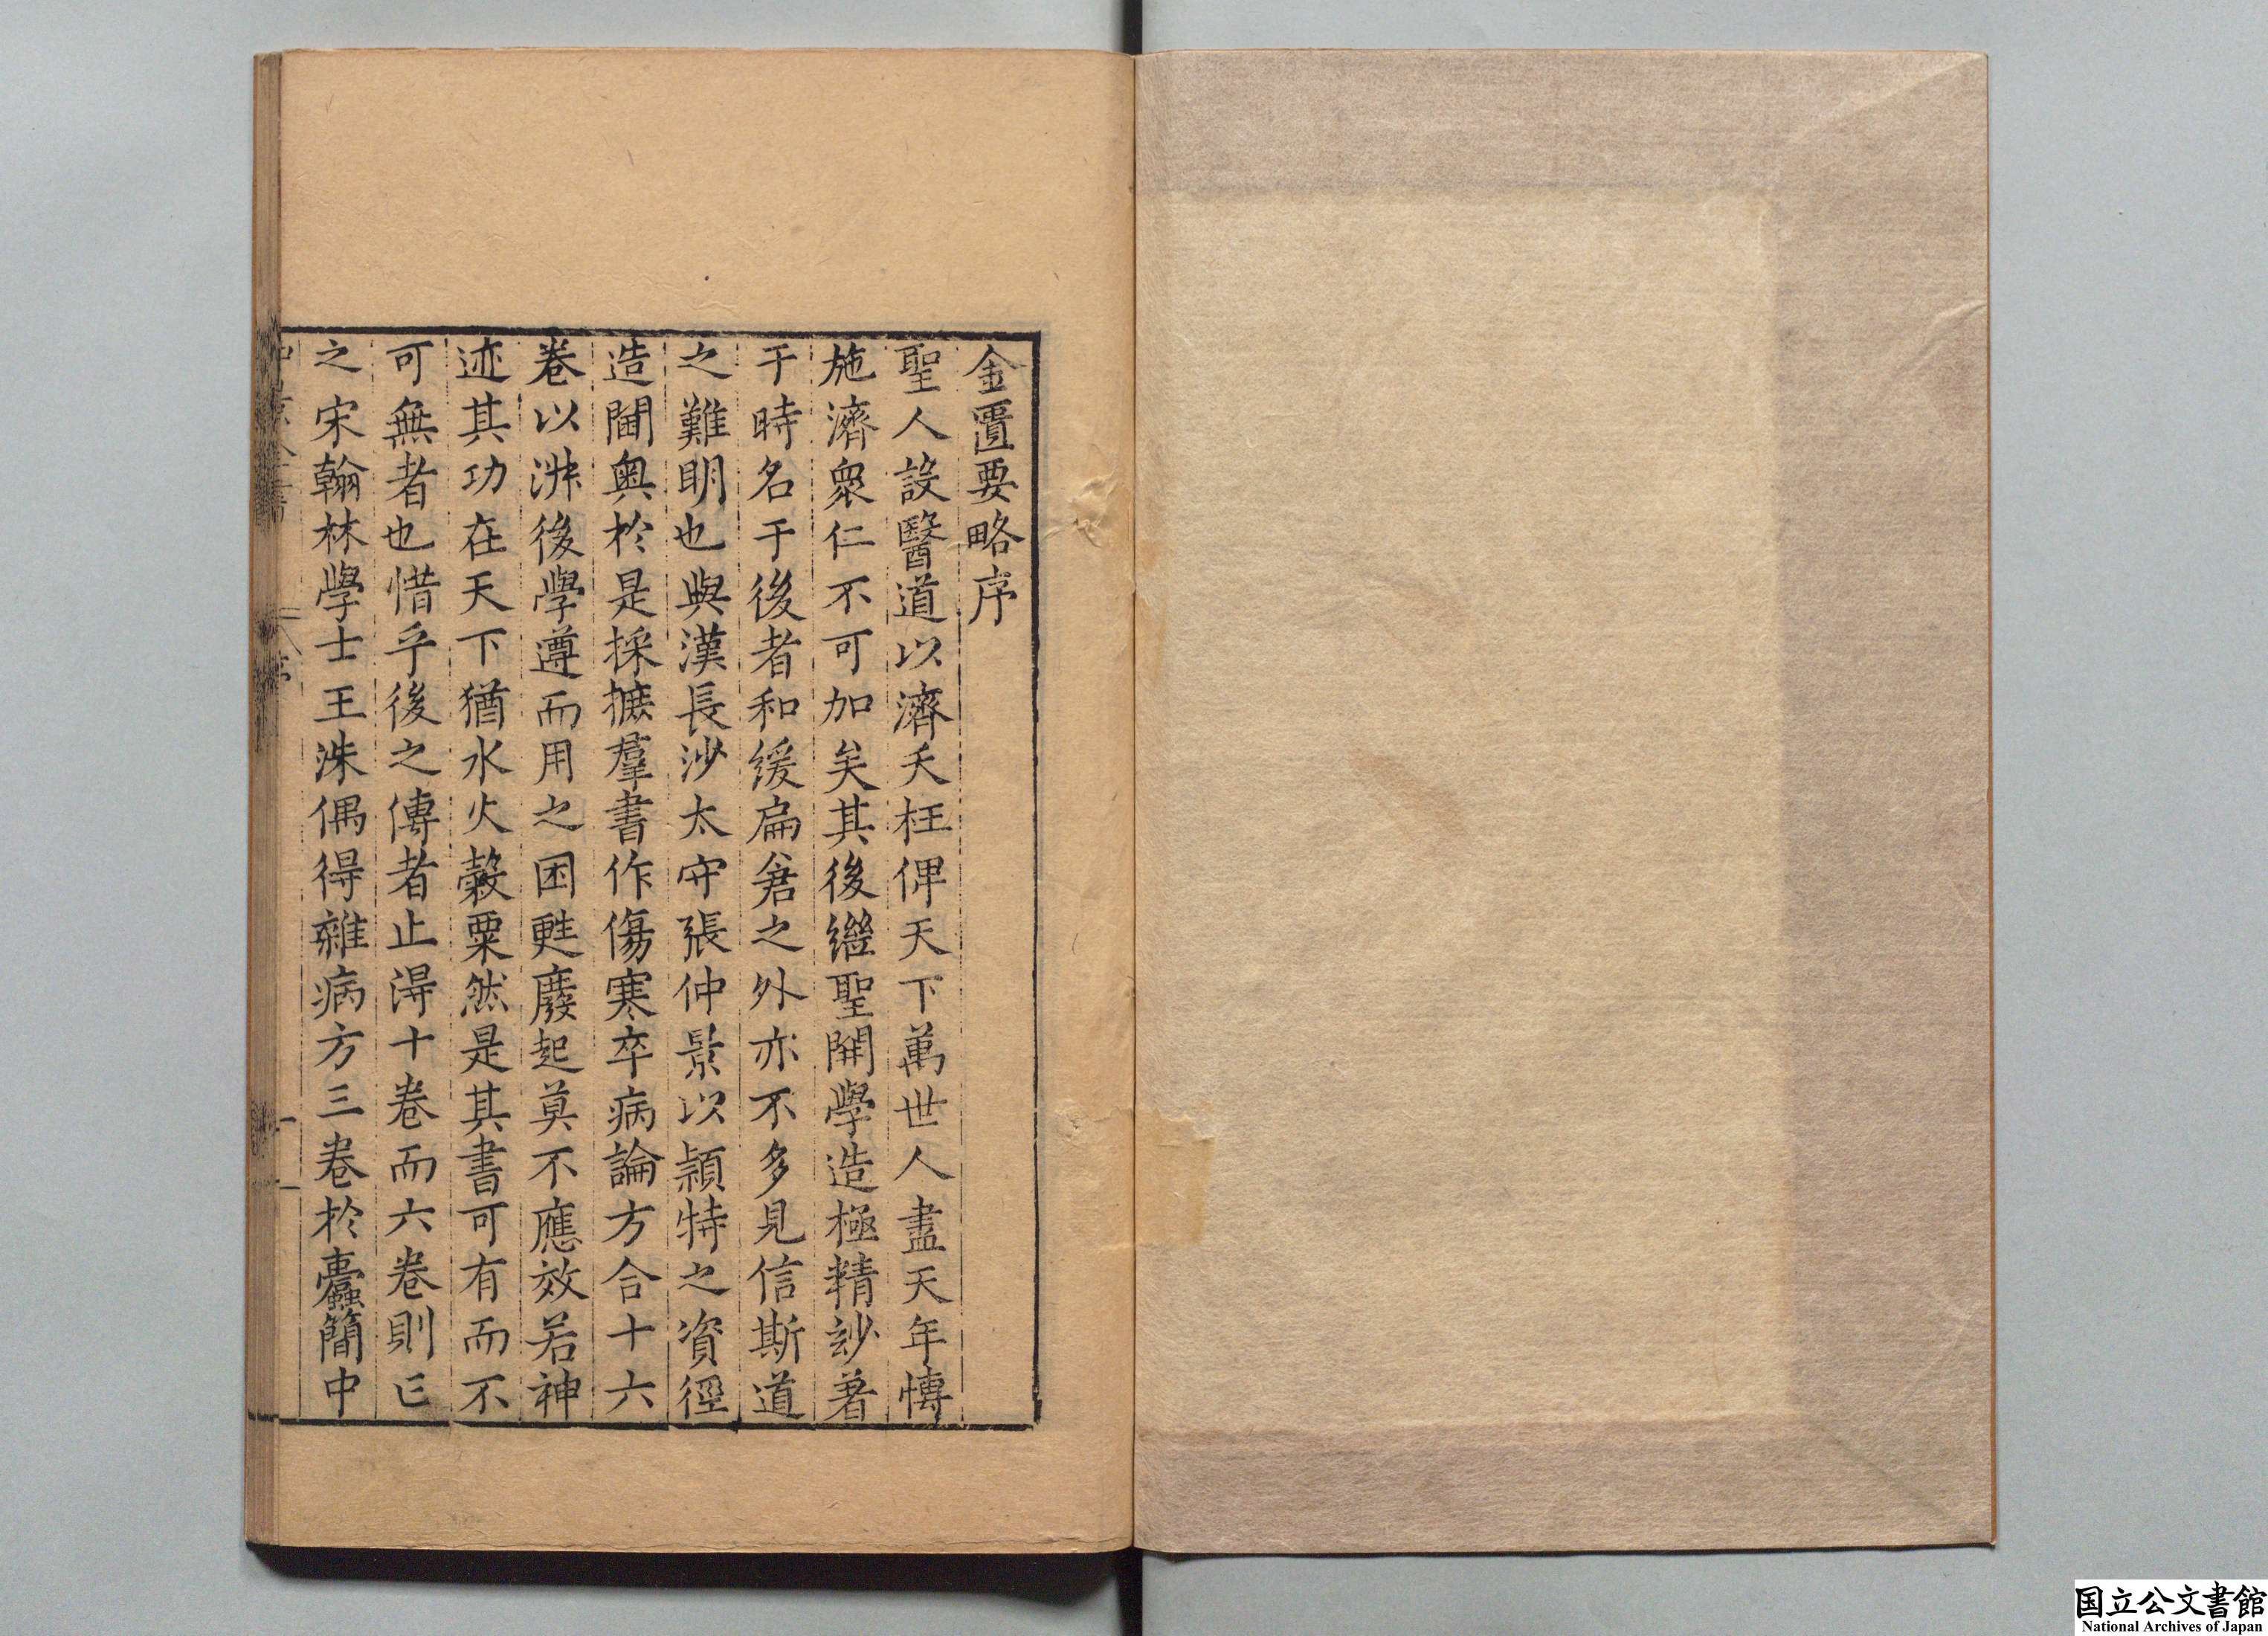 金匱要略序
聖人設醫道以濟夭枉俾天下萬世人盡天年博
施濟衆仁不可加矣其後繼聖開學造極精妙著
于時名于後者和緩扁倉之外亦不多見信斯道
之難明也與漢長沙太守張仲景以頴特之資徑
造閫奥於是採摭羣書作傷寒卒病論方合十六
卷以淑後學遵而用之困甦廢起莫不應效若神
迹其功在天下猶水火穀粟然是其書可有而不
可無者也惜乎後之傳者止得十卷而六卷則亡
之宋翰林學士王洙偶得雜病方三卷於蠹簡中
国立公文書館
National Archives of Japan